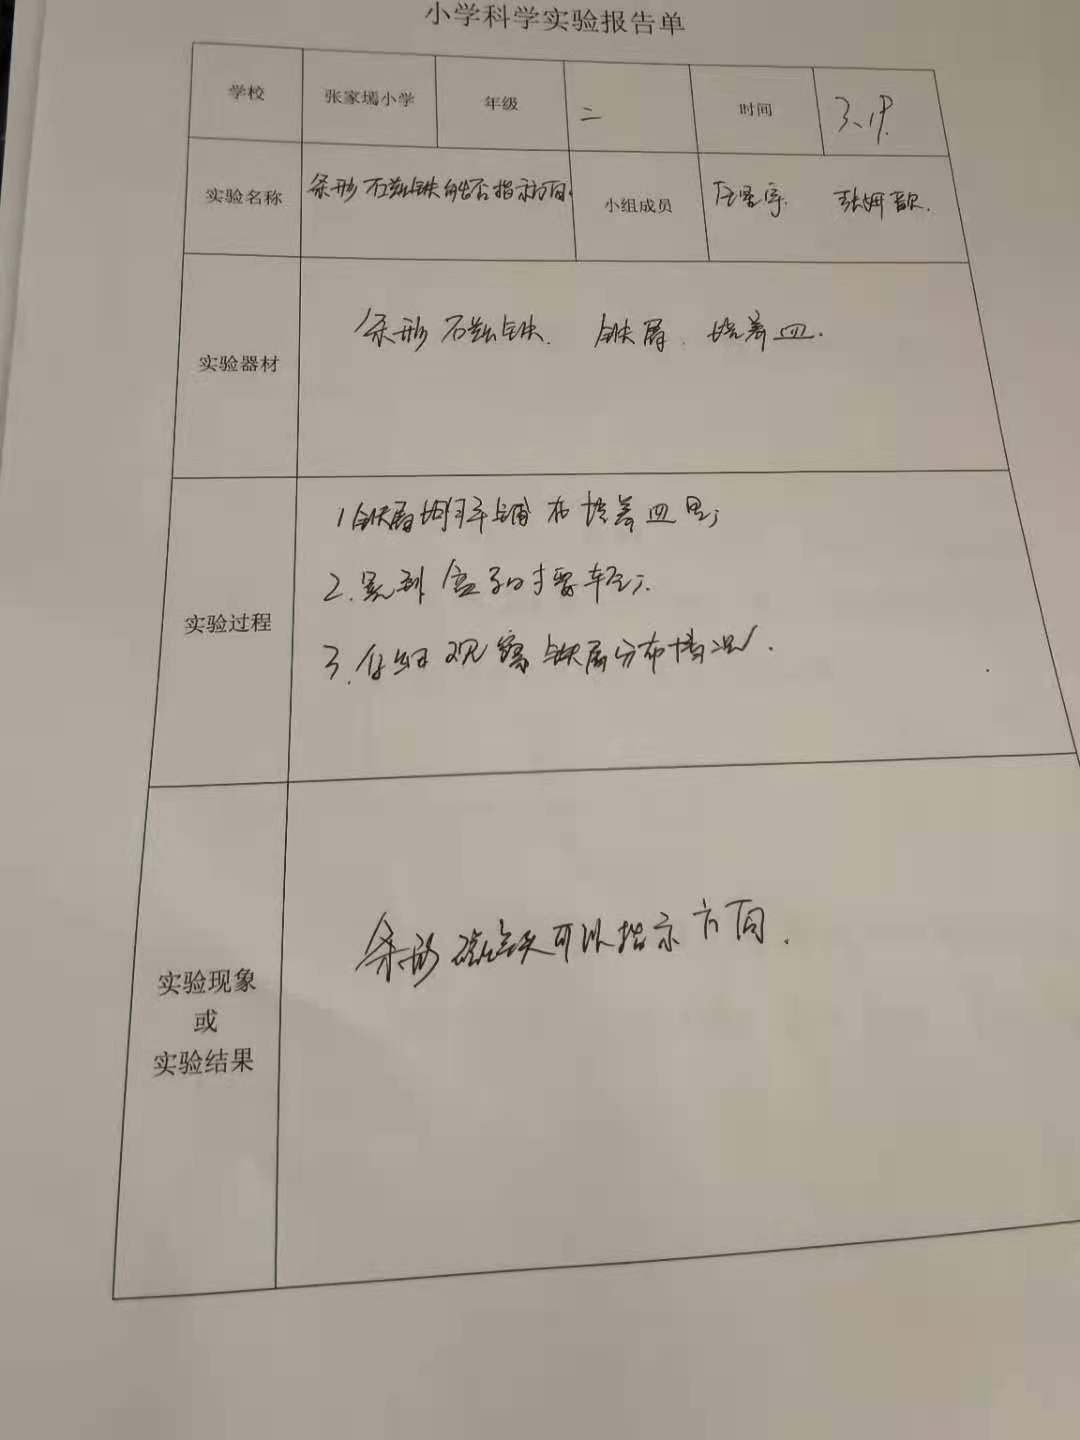 小学科学实验报告单
学校 张家墕小学 年级 二 时间 3.19.
实验名称 条形石磁铁能否指示方向. 小组成员
实验器材 条形石磁铁. 铁屑. 培养皿.
实验过程
1 铁屑均匀平铺在培养皿里;
2. 盒子时要轻;
3. 仔细观察铁屑分布情况.
实验现象
或
实验结果
条形磁铁可以指示方向.